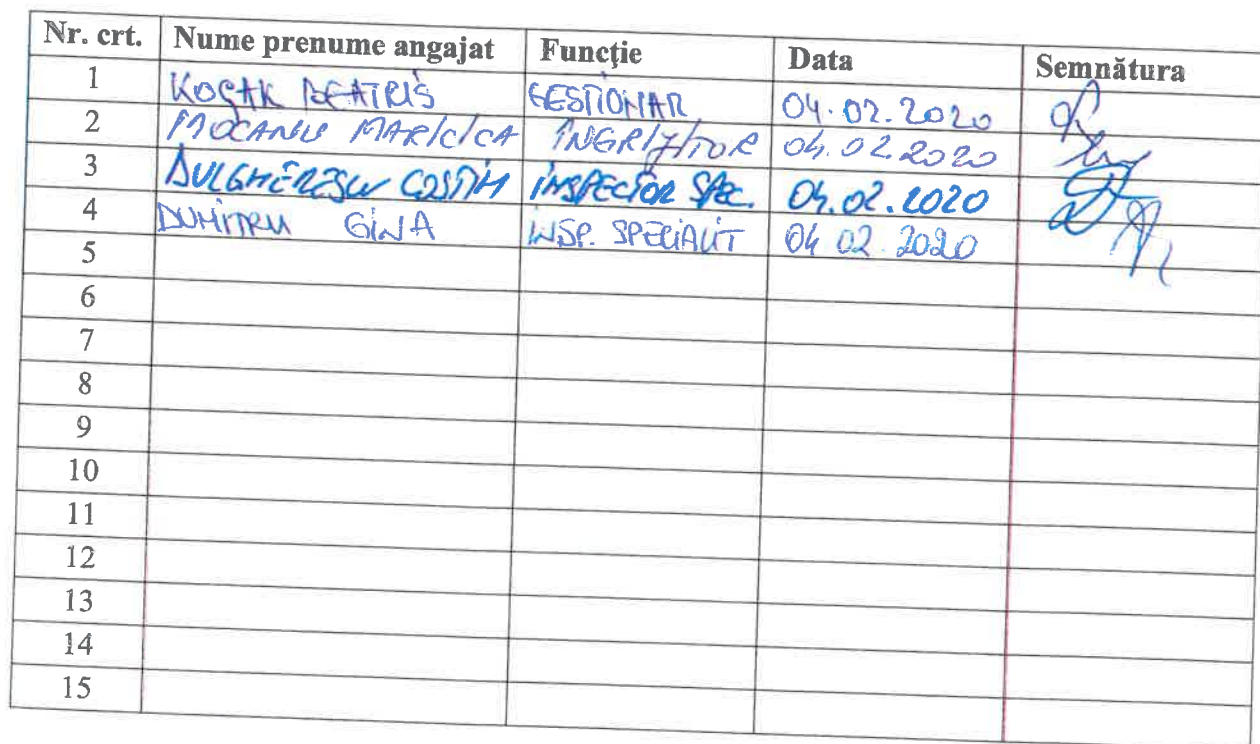 Nr. crt. Nume prenume angajat Funcție Data Semnătura
1 KOÇAK BEATRIS GESTIONAR 04.02.2020
2 MOCANU MARICICA ÎNGRIJITOR 04.02.2020
3 DULGHERESCU COSTIN INSPECTOR SPEC. 04.02.2020
4 DUMITRU GINA INSP. SPECIALIT 04 02. 2020
5
6
7
8
9
10
11
12
13
14
15